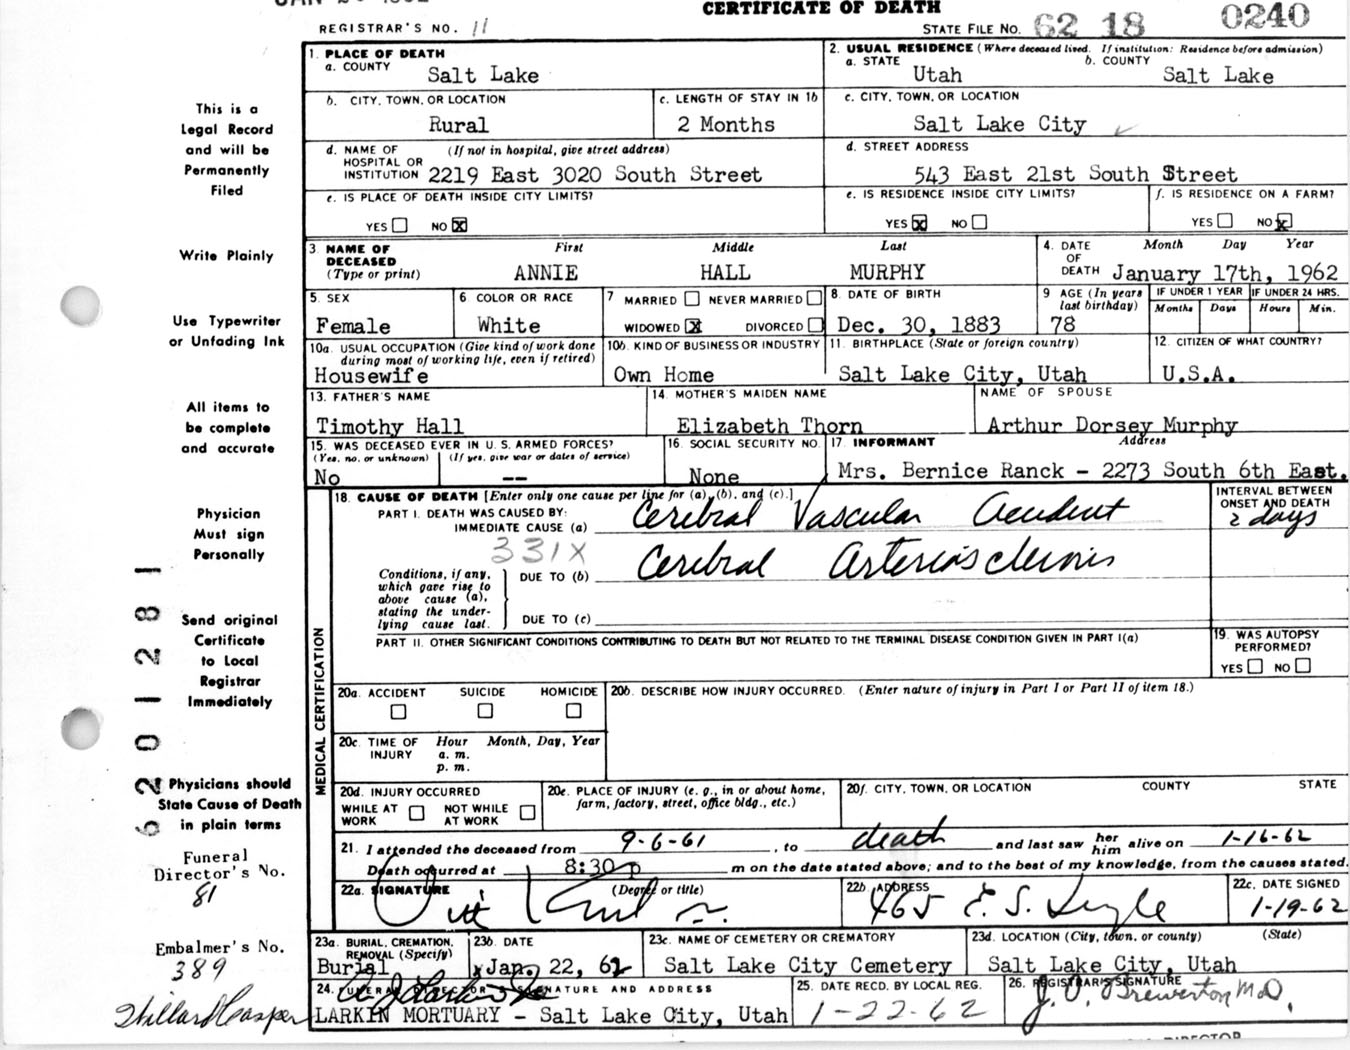 CERTIFICATE OF DEATH
REGISTRAR'S NO. 11
STATE FILE NO. 62 18 0240
1. PLACE OF DEATH
a. COUNTY Salt Lake
2. USUAL RESIDENCE (Where deceased lived. If institution: Residence before admission)
a. STATE Utah b. COUNTY Salt Lake
b. CITY, TOWN, OR LOCATION Rural
c. LENGTH OF STAY IN 1b 2 Months
c. CITY, TOWN, OR LOCATION Salt Lake City
d. NAME OF HOSPITAL OR INSTITUTION (If not in hospital, give street address) 2219 East 3020 South Street
d. STREET ADDRESS 543 East 21st South Street
e. IS PLACE OF DEATH INSIDE CITY LIMITS? YES NO X
e. IS RESIDENCE INSIDE CITY LIMITS? YES X NO
f. IS RESIDENCE ON A FARM? YES NO X
3. NAME OF DECEASED (Type or print) First Middle Last
ANNIE HALL MURPHY
4. DATE OF DEATH Month Day Year
January 17th, 1962
5. SEX Female
6. COLOR OR RACE White
7. MARRIED NEVER MARRIED WIDOWED X DIVORCED
8. DATE OF BIRTH Dec. 30, 1883
9. AGE (In years last birthday) 78
IF UNDER 1 YEAR Months Days
IF UNDER 24 HRS. Hours Min.
10a. USUAL OCCUPATION (Give kind of work done during most of working life, even if retired) Housewife
10b. KIND OF BUSINESS OR INDUSTRY Own Home
11. BIRTHPLACE (State or foreign country) Salt Lake City, Utah
12. CITIZEN OF WHAT COUNTRY? U.S.A.
13. FATHER'S NAME Timothy Hall
14. MOTHER'S MAIDEN NAME Elizabeth Thorn
NAME OF SPOUSE Arthur Dorsey Murphy
15. WAS DECEASED EVER IN U.S. ARMED FORCES? (Yes, no, or unknown) (If yes, give war or dates of service) No --
16. SOCIAL SECURITY NO. None
17. INFORMANT Address
Mrs. Bernice Ranck - 2273 South 6th East.
18. CAUSE OF DEATH [Enter only one cause per line for (a), (b), and (c).]
PART I. DEATH WAS CAUSED BY:
IMMEDIATE CAUSE (a) Cerebral Vascular Accident
INTERVAL BETWEEN ONSET AND DEATH 2 days
331X
Conditions, if any, which gave rise to above cause (a), stating the underlying cause last.
DUE TO (b) Cerebral Arteriosclerosis
DUE TO (c)
PART II. OTHER SIGNIFICANT CONDITIONS CONTRIBUTING TO DEATH BUT NOT RELATED TO THE TERMINAL DISEASE CONDITION GIVEN IN PART I(a)
19. WAS AUTOPSY PERFORMED? YES NO
MEDICAL CERTIFICATION
20a. ACCIDENT SUICIDE HOMICIDE
20b. DESCRIBE HOW INJURY OCCURRED. (Enter nature of injury in Part I or Part II of item 18.)
20c. TIME OF INJURY Hour a. m. p. m. Month, Day, Year
20d. INJURY OCCURRED WHILE AT WORK NOT WHILE AT WORK
20e. PLACE OF INJURY (e. g., in or about home, farm, factory, street, office bldg., etc.)
20f. CITY, TOWN, OR LOCATION COUNTY STATE
21. I attended the deceased from 9-6-61, to death and last saw her him alive on 1-16-62
Death occurred at 8:30 p m on the date stated above; and to the best of my knowledge, from the causes stated.
22a. SIGNATURE (Degree or title)
22b. ADDRESS 465 E. S.
22c. DATE SIGNED 1-19-62
23a. BURIAL, CREMATION, REMOVAL (Specify) Burial
23b. DATE Jan. 22, 62
23c. NAME OF CEMETERY OR CREMATORY Salt Lake City Cemetery
23d. LOCATION (City, town, or county) (State) Salt Lake City, Utah
24. FUNERAL DIRECTOR'S SIGNATURE AND ADDRESS
LARKIN MORTUARY - Salt Lake City, Utah
25. DATE RECD. BY LOCAL REG. 1-22-62
26. REGISTRAR'S SIGNATURE J. O. Brewerton M.D.
This is a
Legal Record
and will be
Permanently
Filed
Write Plainly
Use Typewriter
or Unfading Ink
All items to
be complete
and accurate
Physician
Must sign
Personally
Send original
Certificate
to Local
Registrar
Immediately
Physicians should
State Cause of Death
in plain terms
Funeral
Director's No.
81
Embalmer's No.
389